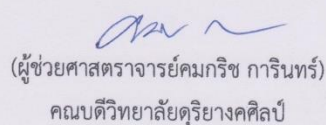 (ผู้ช่วยศาสตราจารย์คมกริช การินทร์)
คณบดีวิทยาลัยดุริยางคศิลป์